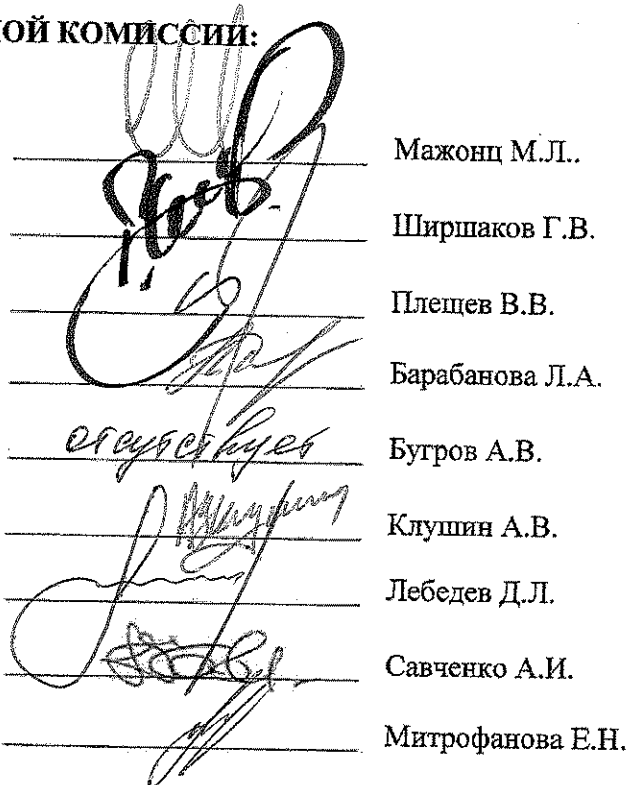 НОЙ КОМИССИИ:
Мажонц М.Л..
Ширшаков Г.В.
Плещев В.В.
Барабанова Л.А.
отсутствует Бугров А.В.
Клушин А.В.
Лебедев Д.Л.
Савченко А.И.
Митрофанова Е.Н.